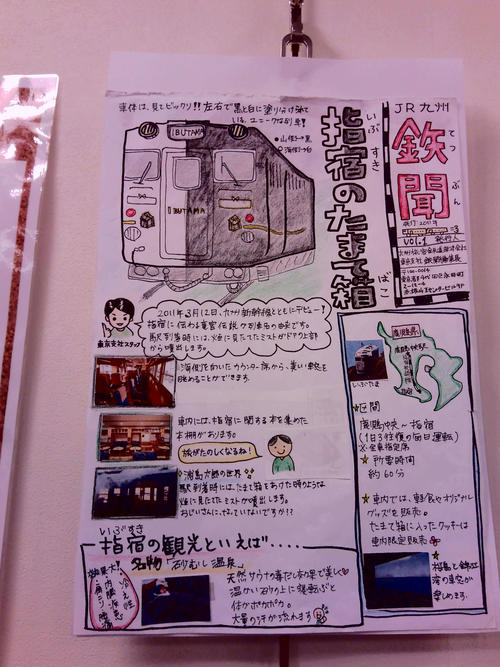 車体は、見てビックリ!!左右で黒と白に塗り分けされて
いる、ユニークな列車!
●山側が黒
○海側が白
IBUTAMA
IBUTAMA
指宿のたまて箱
いぶすき
ばこ
JR九州
鉄聞
てつぶん
vol.1
発行人
2011年3月12日、九州新幹線とともにデビュー!
指宿に伝わる竜宮伝説が列車名の由来です。
駅到着時には、煙に見たてたミストがドア上部
から噴出します。
東京支社スタッフ
海側を向いたカウンター席から、美しい車窓を
眺めることができます。
車内には、指宿に関する本を集めた
本棚があります。
旅がたのしくなるね!
☆浦島太郎の世界☆
駅到着時には、たまて箱をあけた時のような
煙に見たてたミストが噴出します。
おじいさんに、なっていないですか??
鹿児島県
鹿児島中央
指宿
いぶたま
★区間
鹿児島中央〜指宿
(1日3往復の毎日運転)
※全車指定席
★所要時間
約60分
★車内では、軽食やオリジナル
グッズを販売。
たまて箱に入ったクッキーは
車内限定販売
★桜島と錦江
湾の車窓が
楽しめます。
いぶすき
指宿の観光といえば‥‥
名物「砂むし温泉」
天然サウナの毒だし効果で美しく
温かい砂の上に寝転ぶと
体がポカポカ。
大量の汗が流れます